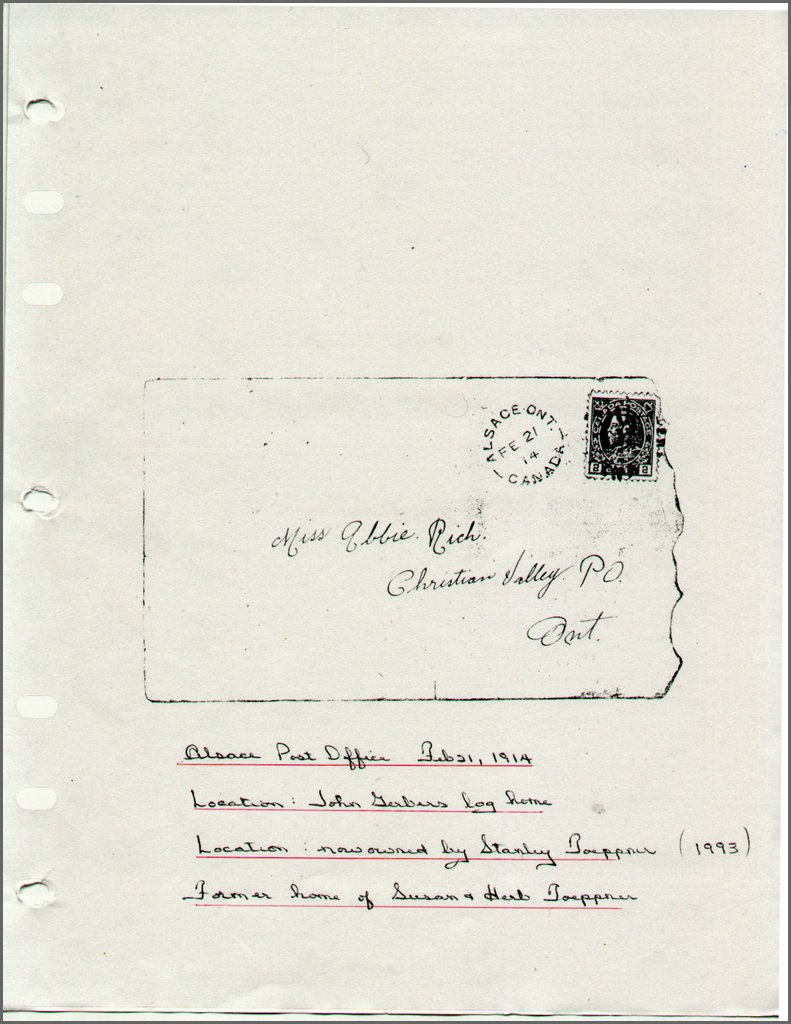 ALSACE·ONT.
FE 21
14
CANADA
CANADA POSTAGE
2 2
Miss Abbie. Rich.
Christian Valley. P.O.
Ont.
Alsace Post Office Feb 21, 1914
Location: John Gerbers log home
Location: now owned by Stanley Toeppner (1993)
Former home of Susan & Herb Toeppner